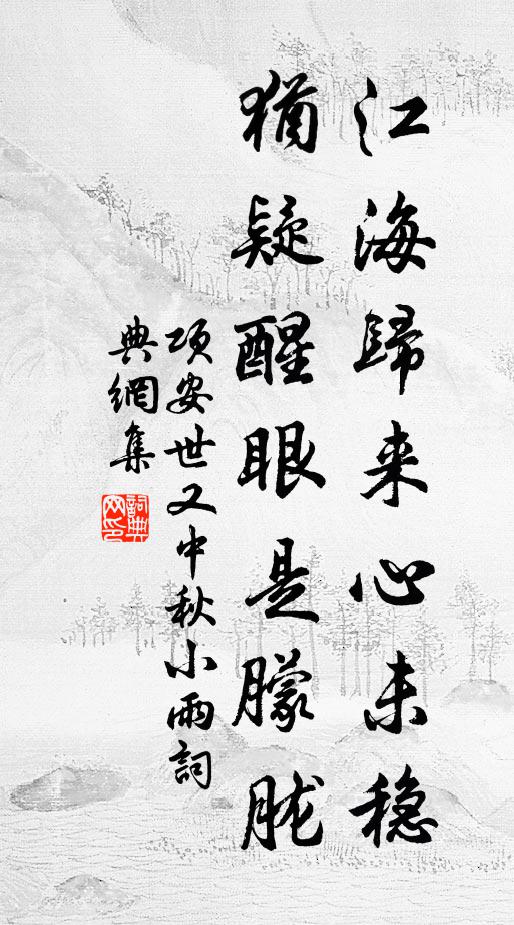 江海歸来心未穩
猶疑醒眼是朦朧
項安世又中秋小雨詞
典網集
詞典网印